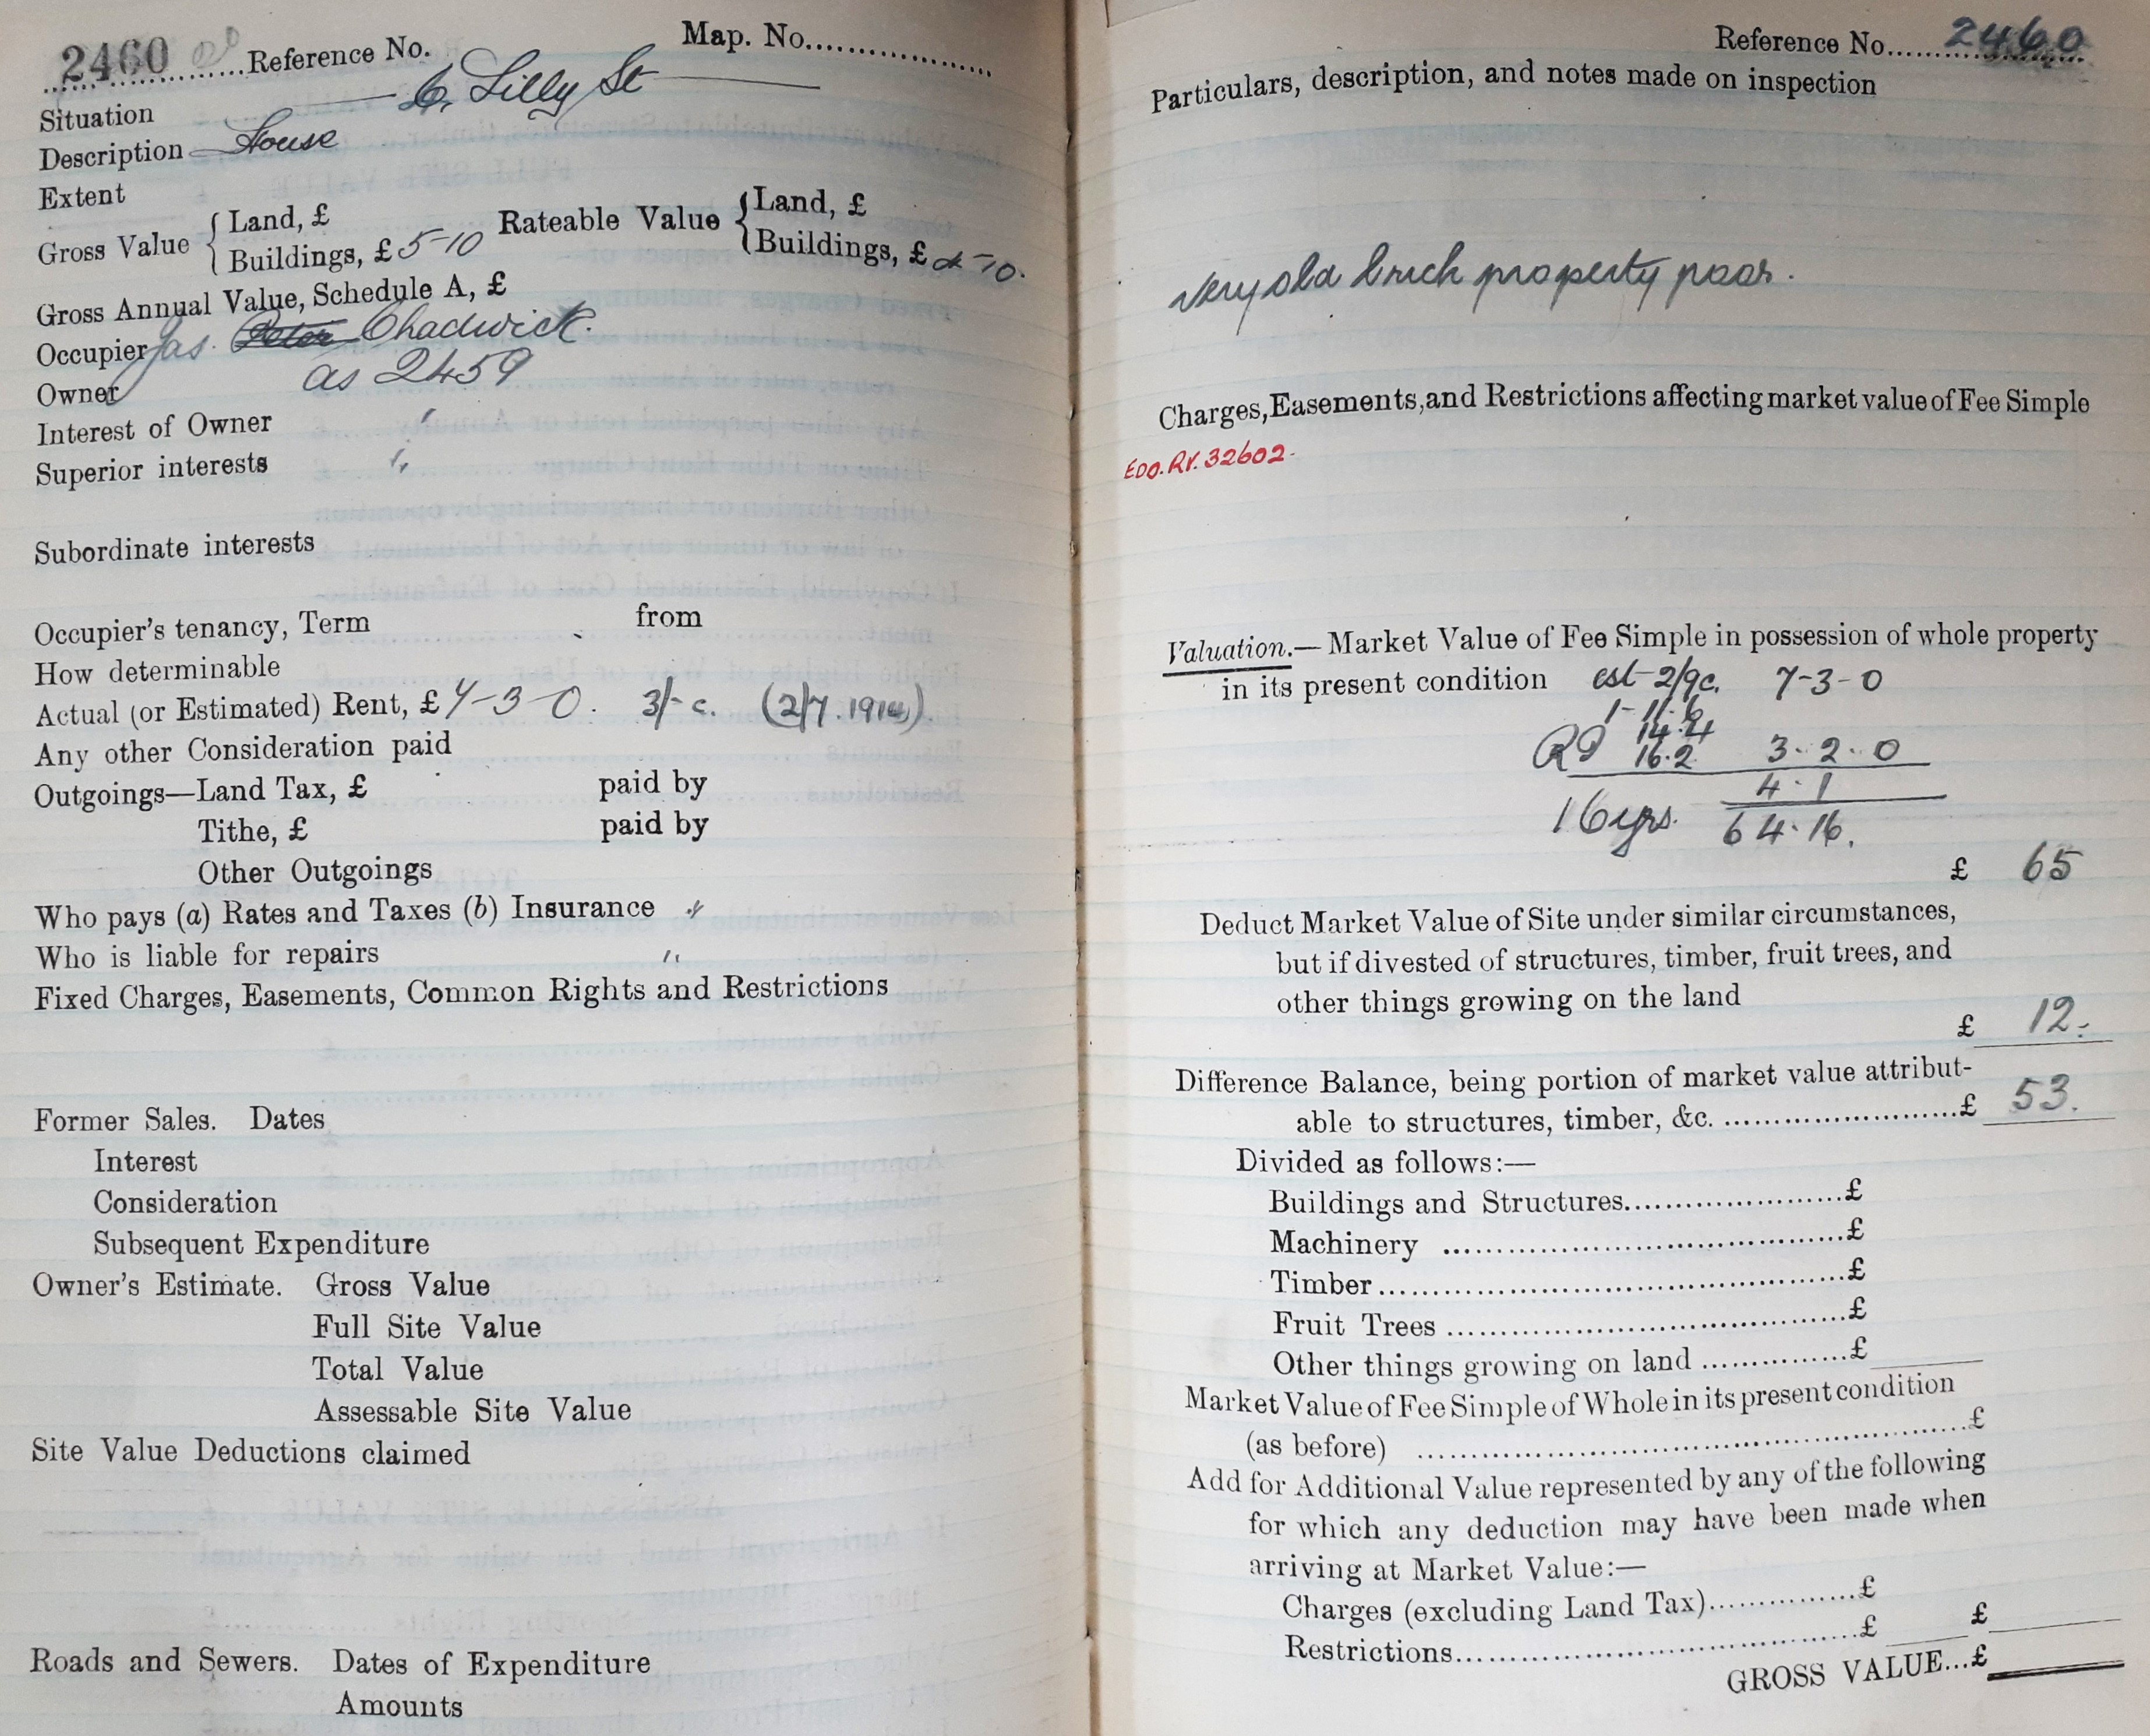 2460 Reference No. Map. No.
Situation 6, Lilly St
Description House
Extent
Gross Value { Land, £ Rateable Value { Land, £
Buildings, £ 5-10 Buildings, £ 4-10.
Gross Annual Value, Schedule A, £
Occupier Jas. Peter Chadwick.
Owner as 2459
Interest of Owner "
Superior interests "
Subordinate interests
Occupier's tenancy, Term from
How determinable
Actual (or Estimated) Rent, £ 7-3-0. 3/- c. (2/7.1914).
Any other Consideration paid
Outgoings—Land Tax, £ paid by
Tithe, £ paid by
Other Outgoings
Who pays (a) Rates and Taxes (b) Insurance "
Who is liable for repairs "
Fixed Charges, Easements, Common Rights and Restrictions
Former Sales. Dates
Interest
Consideration
Subsequent Expenditure
Owner's Estimate. Gross Value
Full Site Value
Total Value
Assessable Site Value
Site Value Deductions claimed
Roads and Sewers. Dates of Expenditure
Amounts
Reference No. 2460
Particulars, description, and notes made on inspection
very old brick property poor.
Charges, Easements, and Restrictions affecting market value of Fee Simple
EDO. RY. 32602.
Valuation.—Market Value of Fee Simple in possession of whole property
in its present condition est 2/9c. 7-3-0
1-11.6
14.4
16.2 3.2.0
4.1
16 yrs. 64.16.
£ 65
Deduct Market Value of Site under similar circumstances,
but if divested of structures, timber, fruit trees, and
other things growing on the land
£ 12.
Difference Balance, being portion of market value attribut-
able to structures, timber, &c. £ 53.
Divided as follows:—
Buildings and Structures £
Machinery £
Timber £
Fruit Trees £
Other things growing on land £
Market Value of Fee Simple of Whole in its present condition
(as before) £
Add for Additional Value represented by any of the following
for which any deduction may have been made when
arriving at Market Value:—
Charges (excluding Land Tax) £
Restrictions £ £
GROSS VALUE...£